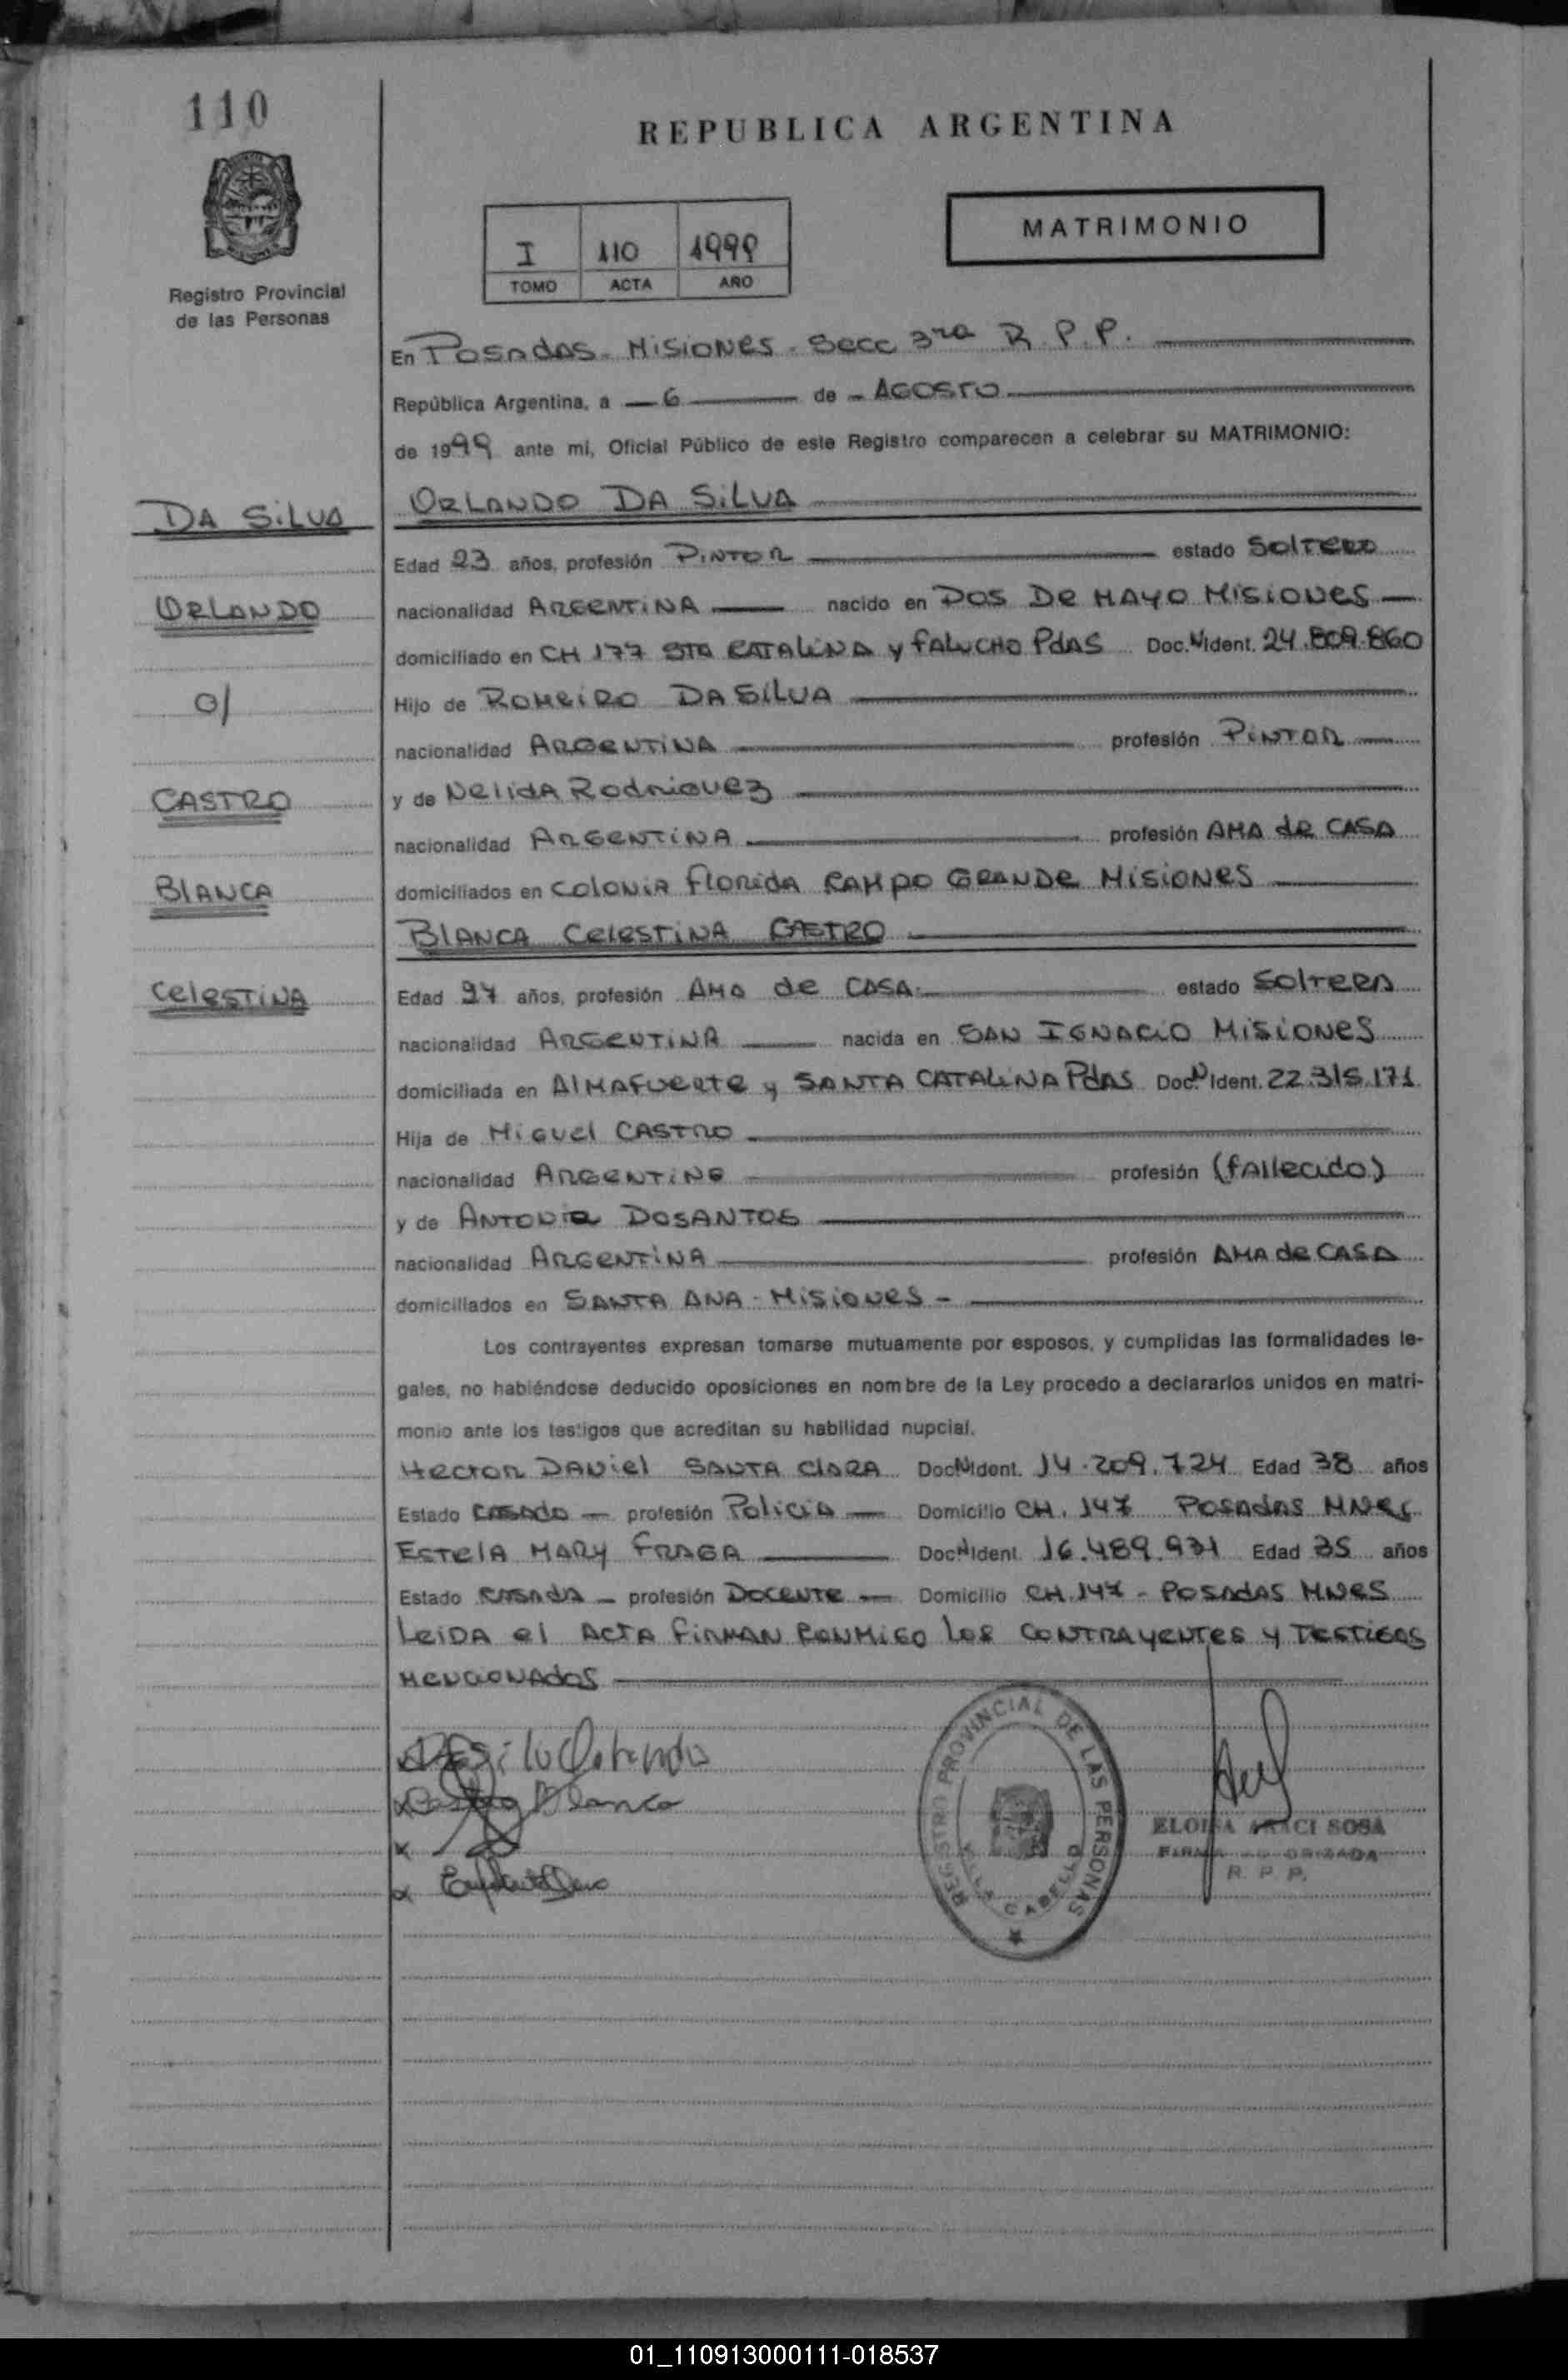 110
REPUBLICA ARGENTINA
Registro Provincial
de las Personas
I 110 1999
TOMO ACTA AÑO
MATRIMONIO
En Posadas - Misiones - Secc 3ra R.P.P.
República Argentina, a 6 de Agosto
de 1999 ante mi, Oficial Público de este Registro comparecen a celebrar su MATRIMONIO:
DA SILVA
ORLANDO DA SILVA
Edad 23 años, profesión PINTOR estado SOLTERO
ORLANDO
nacionalidad ARGENTINA nacido en DOS DE MAYO MISIONES
domiciliado en CH 177 STA CATALINA y FALUCHO Pdas Doc.N Ident. 24.809.860
c/
Hijo de ROMEIRO DA SILVA
nacionalidad ARGENTINA profesión PINTOR
CASTRO
y de NELIDA RODRIGUEZ
nacionalidad ARGENTINA profesión AMA de CASA
BLANCA
domiciliados en COLONIA FLORIDA CAMPO GRANDE MISIONES
BLANCA CELESTINA CASTRO
CELESTINA
Edad 27 años, profesión AMA de CASA estado SOLTERA
nacionalidad ARGENTINA nacida en SAN IGNACIO MISIONES
domiciliada en ALMAFUERTE y SANTA CATALINA Pdas Doc.N Ident. 22.315.171
Hija de MIGUEL CASTRO
nacionalidad ARGENTINO profesión (fallecido)
y de ANTONIA DOSANTOS
nacionalidad ARGENTINA profesión AMA de CASA
domiciliados en SANTA ANA - MISIONES -
Los contrayentes expresan tomarse mutuamente por esposos, y cumplidas las formalidades le-
gales, no habiéndose deducido oposiciones en nombre de la Ley procedo a declararlos unidos en matri-
monio ante los testigos que acreditan su habilidad nupcial.
HECTOR DANIEL SANTA CLARA Doc N Ident. 14.209.724 Edad 38 años
Estado CASADO profesión POLICIA Domicilio CH. 147 POSADAS MNES
ESTELA MARY FRAGA Doc N Ident. 16.489.931 Edad 35 años
Estado CASADA profesión DOCENTE Domicilio CH. 147 - POSADAS MNES
LEIDA el ACTA FIRMAN CONMIGO los CONTRAYENTES y TESTIGOS
MENCIONADOS
Da Silva Orlando
Castro Blanca
REGISTRO PROVINCIAL DE LAS PERSONAS
VILLA CABELLO
ELOISA ARACI SOSA
FIRMA AUTORIZADA
R. P. P.
01_110913000111-018537